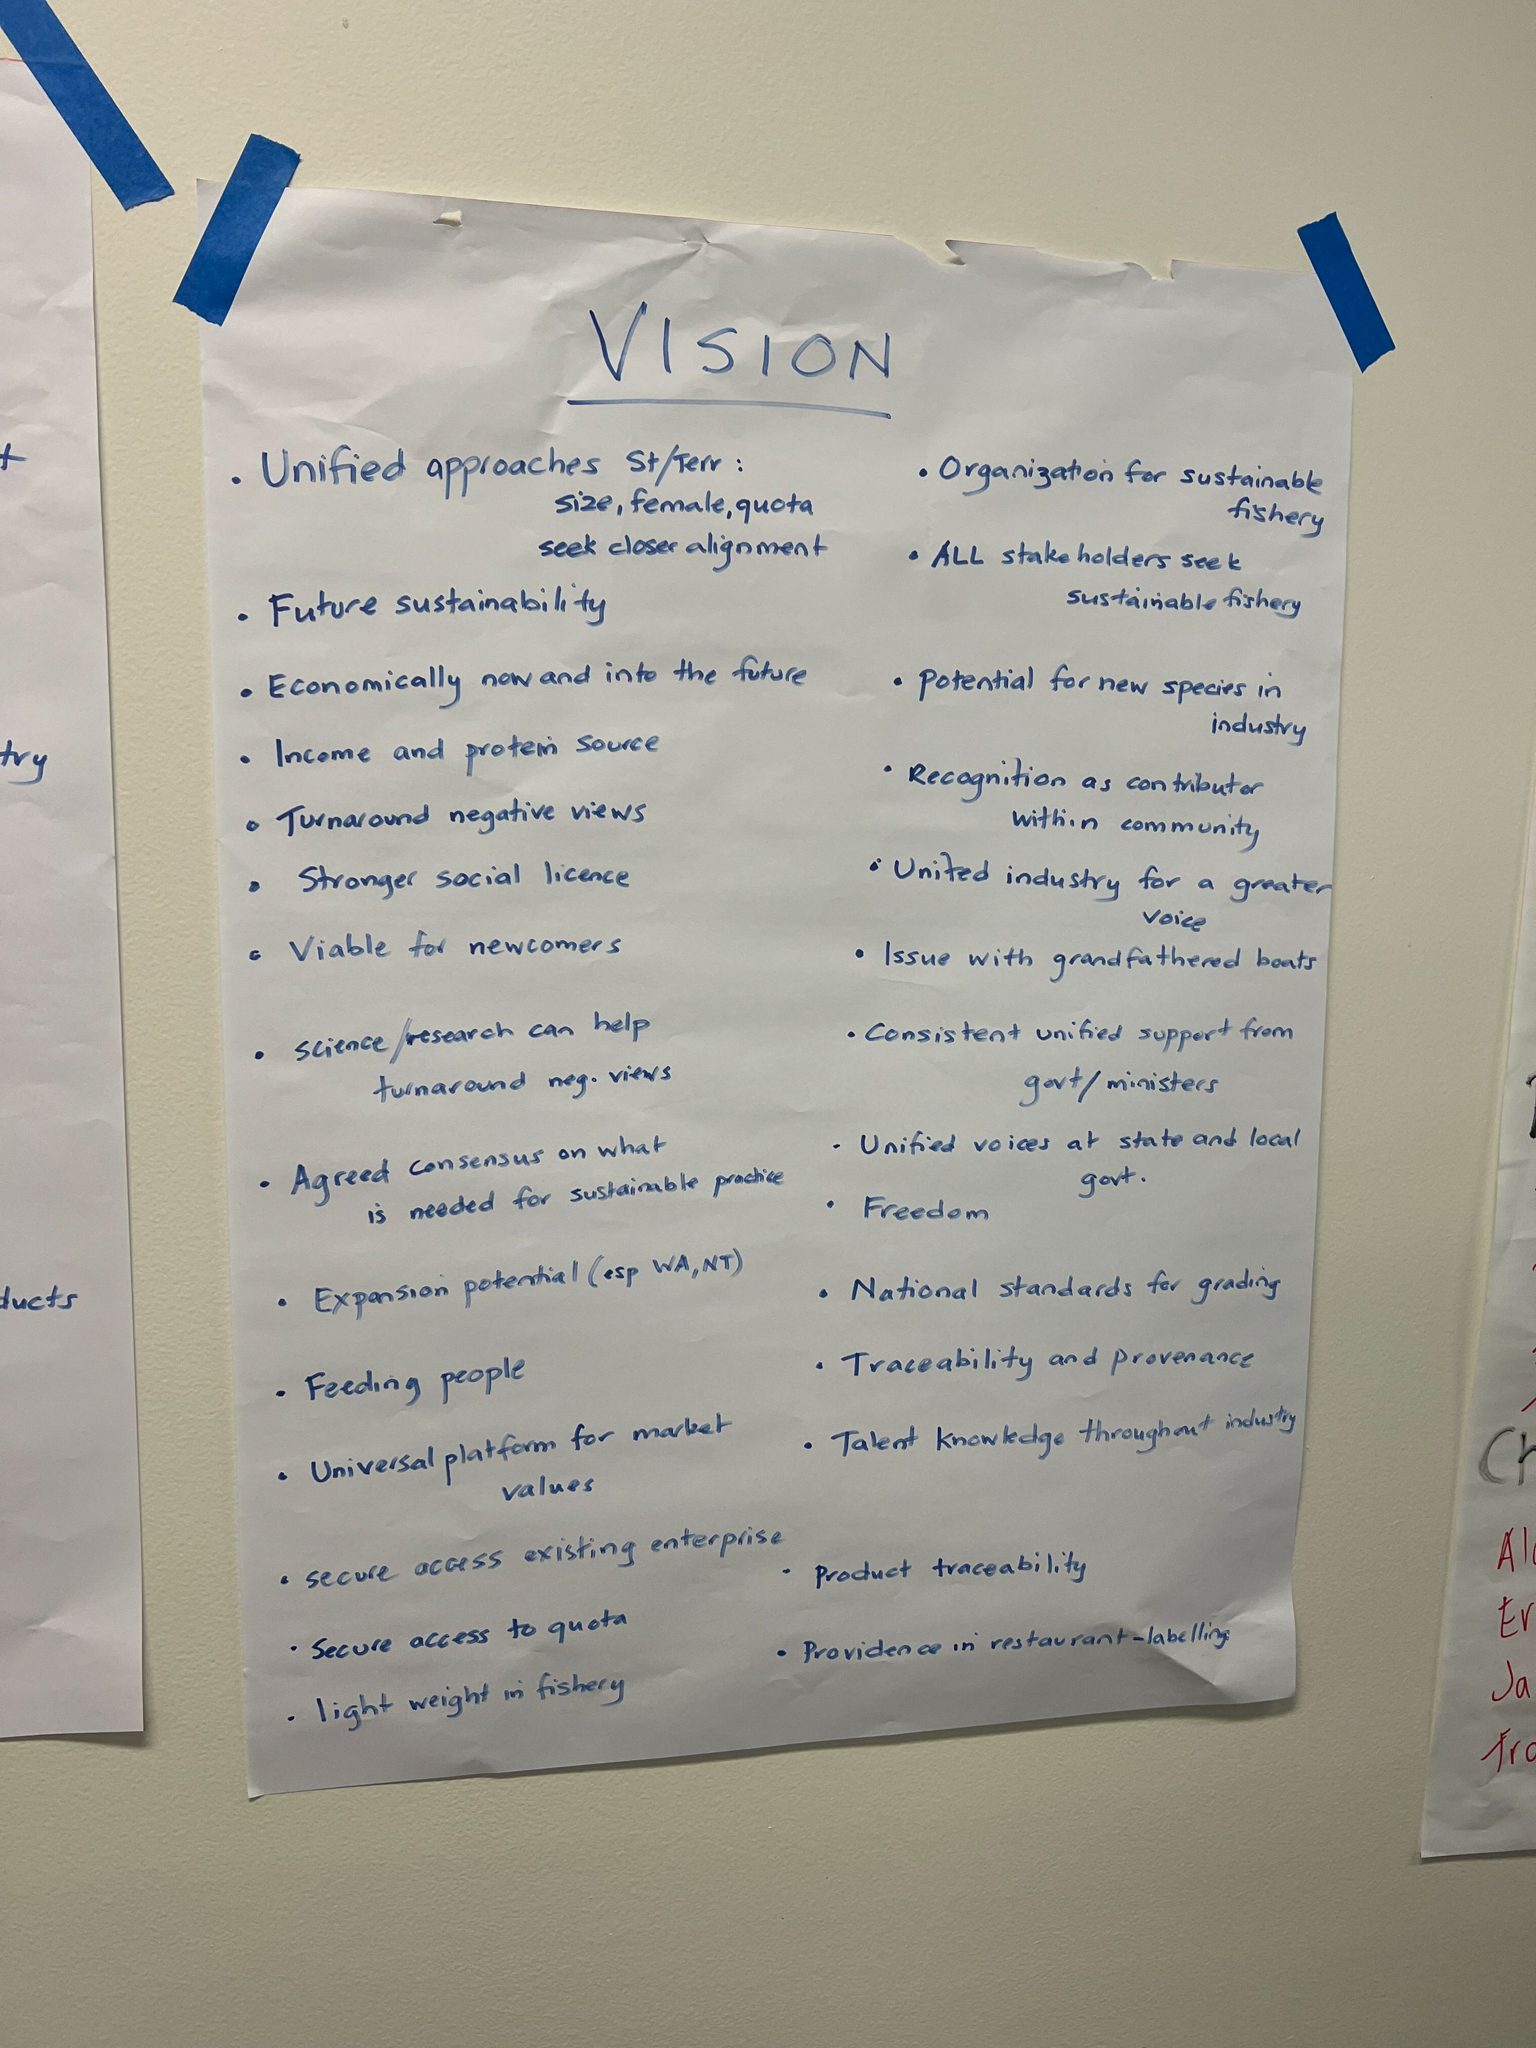 VISION
• Unified approaches St/Terr :
size, female, quota
seek closer alignment
• Future sustainability
• Economically now and into the future
• Income and protein source
• Turnaround negative views
• Stronger social licence
• Viable for newcomers
• science/research can help
turnaround neg. views
• Agreed consensus on what
is needed for sustainable practice
• Expansion potential (esp WA, NT)
• Feeding people
• Universal platform for market
values
• secure access existing enterprise
• Secure access to quota
• light weight in fishery
• Organization for sustainable
fishery
• ALL stakeholders seek
sustainable fishery
• potential for new species in
industry
• Recognition as contributor
within community
• United industry for a greater
voice
• Issue with grandfathered boats
• Consistent unified support from
govt/ministers
• Unified voices at state and local
govt.
• Freedom
• National standards for grading
• Traceability and provenance
• Talent knowledge throughout industry
• Product traceability
• Providence in restaurant-labelling
try
ducts
Ch
Er
Ja
Fro